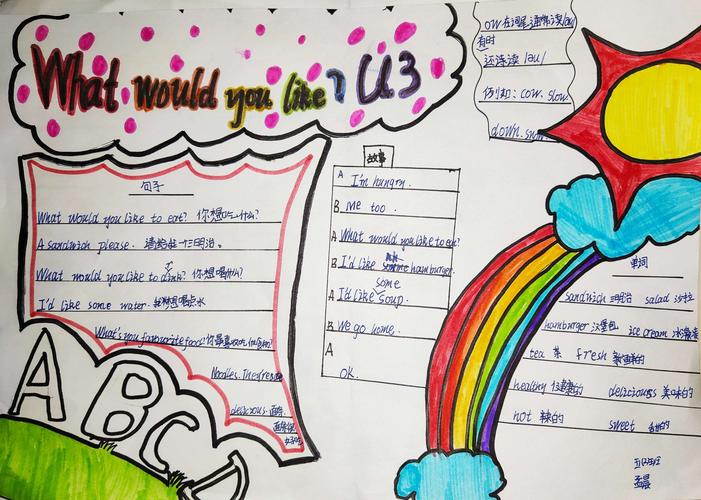 What would you like? U3
ow在词尾通常读/əu/
有时
还读 /au/
例如: cow. slow.
down. snow
句子
What would you like to eat? 你想吃什么?
A sandwich please. 请给我一个三明治。
What would you like to drink? 你想喝什么?
I'd like some water. 我想喝点水
What's your favourite food? 你最喜欢吃什么食物?
Noodles. They're
delicious 面条
面条很
好吃
故事
A I'm hungry.
B Me too.
A What would you like to eat?
B I'd like hamburger.
some
A I'd like soup.
B We go home.
A
OK.
单词
sandwich 三明治 salad 沙拉
hamburger 汉堡包 ice cream 冰淇淋
tea 茶 fresh 新鲜的
healthy 健康的 delicious 美味的
hot 辣的 sweet 甜的
ABC